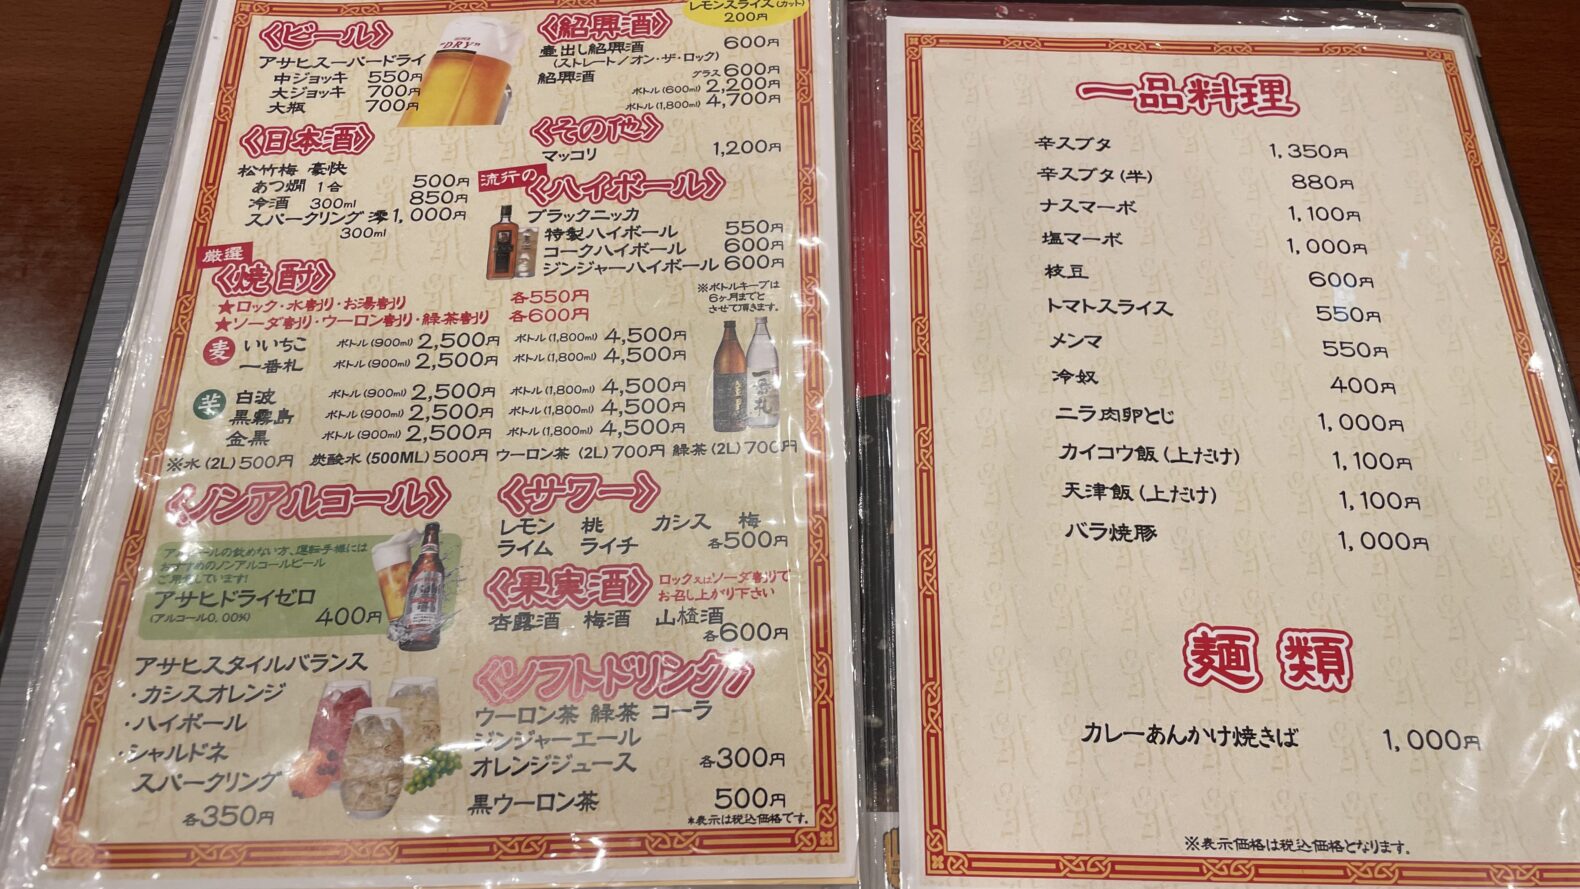 レモンスライス(カット)
200円
〈ビール〉
DRY
アサヒスーパードライ
中ジョッキ 550円
大ジョッキ 700円
大瓶 700円
〈日本酒〉
松竹梅 豪快
あつ燗 1合 500円
冷酒 300ml 850円
スパークリング澪 1,000円
300ml
〈紹興酒〉
壷出し紹興酒 600円
(ストレート/オン・ザ・ロック)
紹興酒 グラス 600円
ボトル(600ml) 2,200円
ボトル(1,800ml) 4,700円
〈その他〉
マッコリ 1,200円
流行の
〈ハイボール〉
ブラックニッカ
特製ハイボール 550円
コークハイボール 600円
ジンジャーハイボール 600円
厳選
〈焼酎〉
★ロック・水割り・お湯割り 各550円
★ソーダ割り・ウーロン割り・緑茶割り 各600円
※ボトルキープは
6ヶ月までと
させて頂きます。
麦 いいちこ ボトル(900ml) 2,500円 ボトル(1,800ml) 4,500円
一番札 ボトル(900ml) 2,500円 ボトル(1,800ml) 4,500円
芋 白波 ボトル(900ml) 2,500円 ボトル(1,800ml) 4,500円
黒霧島 ボトル(900ml) 2,500円 ボトル(1,800ml) 4,500円
金黒 ボトル(900ml) 2,500円 ボトル(1,800ml) 4,500円
一番札
※水(2L)500円 炭酸水(500ML)500円 ウーロン茶(2L)700円 緑茶(2L)700円
〈ノンアルコール〉
アルコールの飲めない方、運転手様には
おすすめのノンアルコールビール
ご用意しています!
アサヒドライゼロ
(アルコール0.00%) 400円
アサヒスタイルバランス
・カシスオレンジ
・ハイボール
・シャルドネ
スパークリング
各350円
〈サワー〉
レモン 桃 カシス 梅
ライム ライチ 各500円
〈果実酒〉
ロック又はソーダ割りで
お召し上がり下さい
杏露酒 梅酒 山楂酒
各600円
〈ソフトドリンク〉
ウーロン茶 緑茶 コーラ
ジンジャーエール
オレンジジュース 各300円
黒ウーロン茶 500円
*表示は税込価格です。
一品料理
辛スブタ 1,350円
辛スブタ(半) 880円
ナスマーボ 1,100円
塩マーボ 1,000円
枝豆 600円
トマトスライス 550円
メンマ 550円
冷奴 400円
ニラ肉卵とじ 1,000円
カイコウ飯(上だけ) 1,100円
天津飯(上だけ) 1,100円
バラ焼豚 1,000円
麺類
カレーあんかけ焼きば 1,000円
※表示価格は税込価格となります。